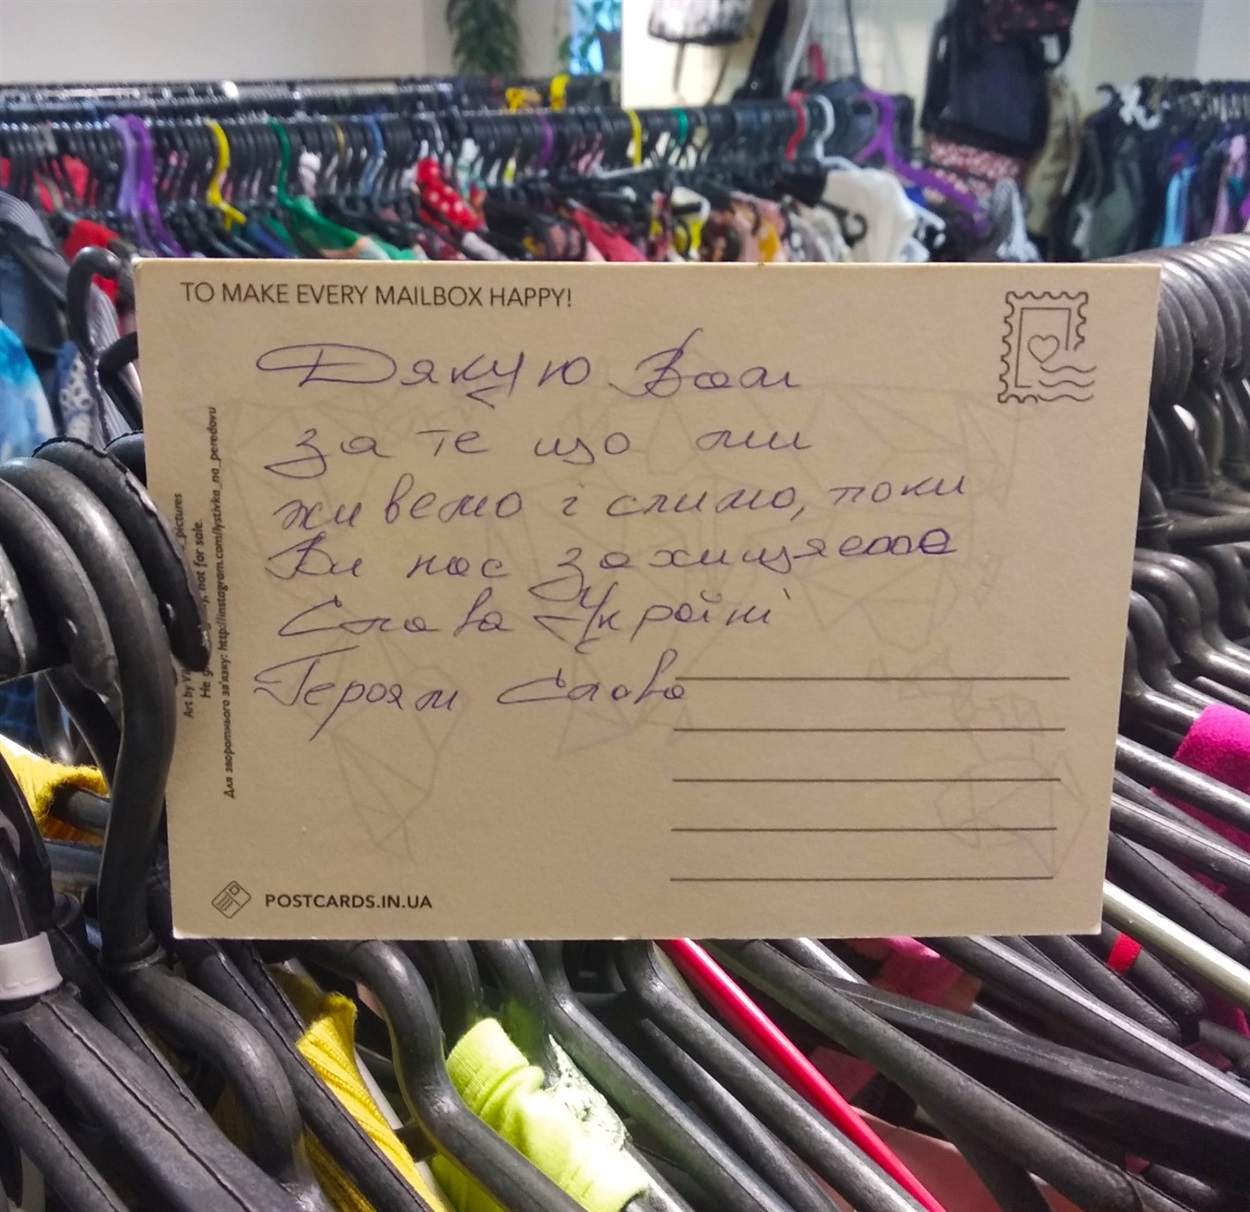 TO MAKE EVERY MAILBOX HAPPY!
Дякую Вам
за те що ми
живемо і спимо, поки
Ви нас захищяєте
Слава Україні
Героям Слава
pictures
not for sale.
Для зворотнього зв'язку: http://instagram.com/lystivka_na_peredovu
Art by
Не
POSTCARDS.IN.UA